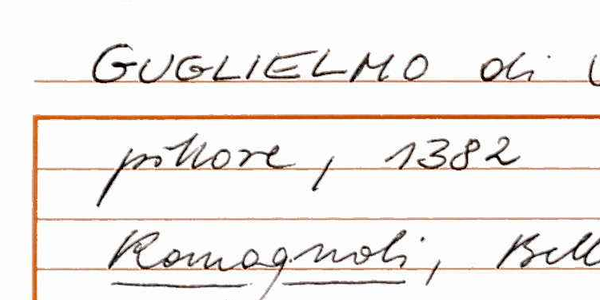 GUGLIELMO di
pittore, 1382
Romagnoli, Bell